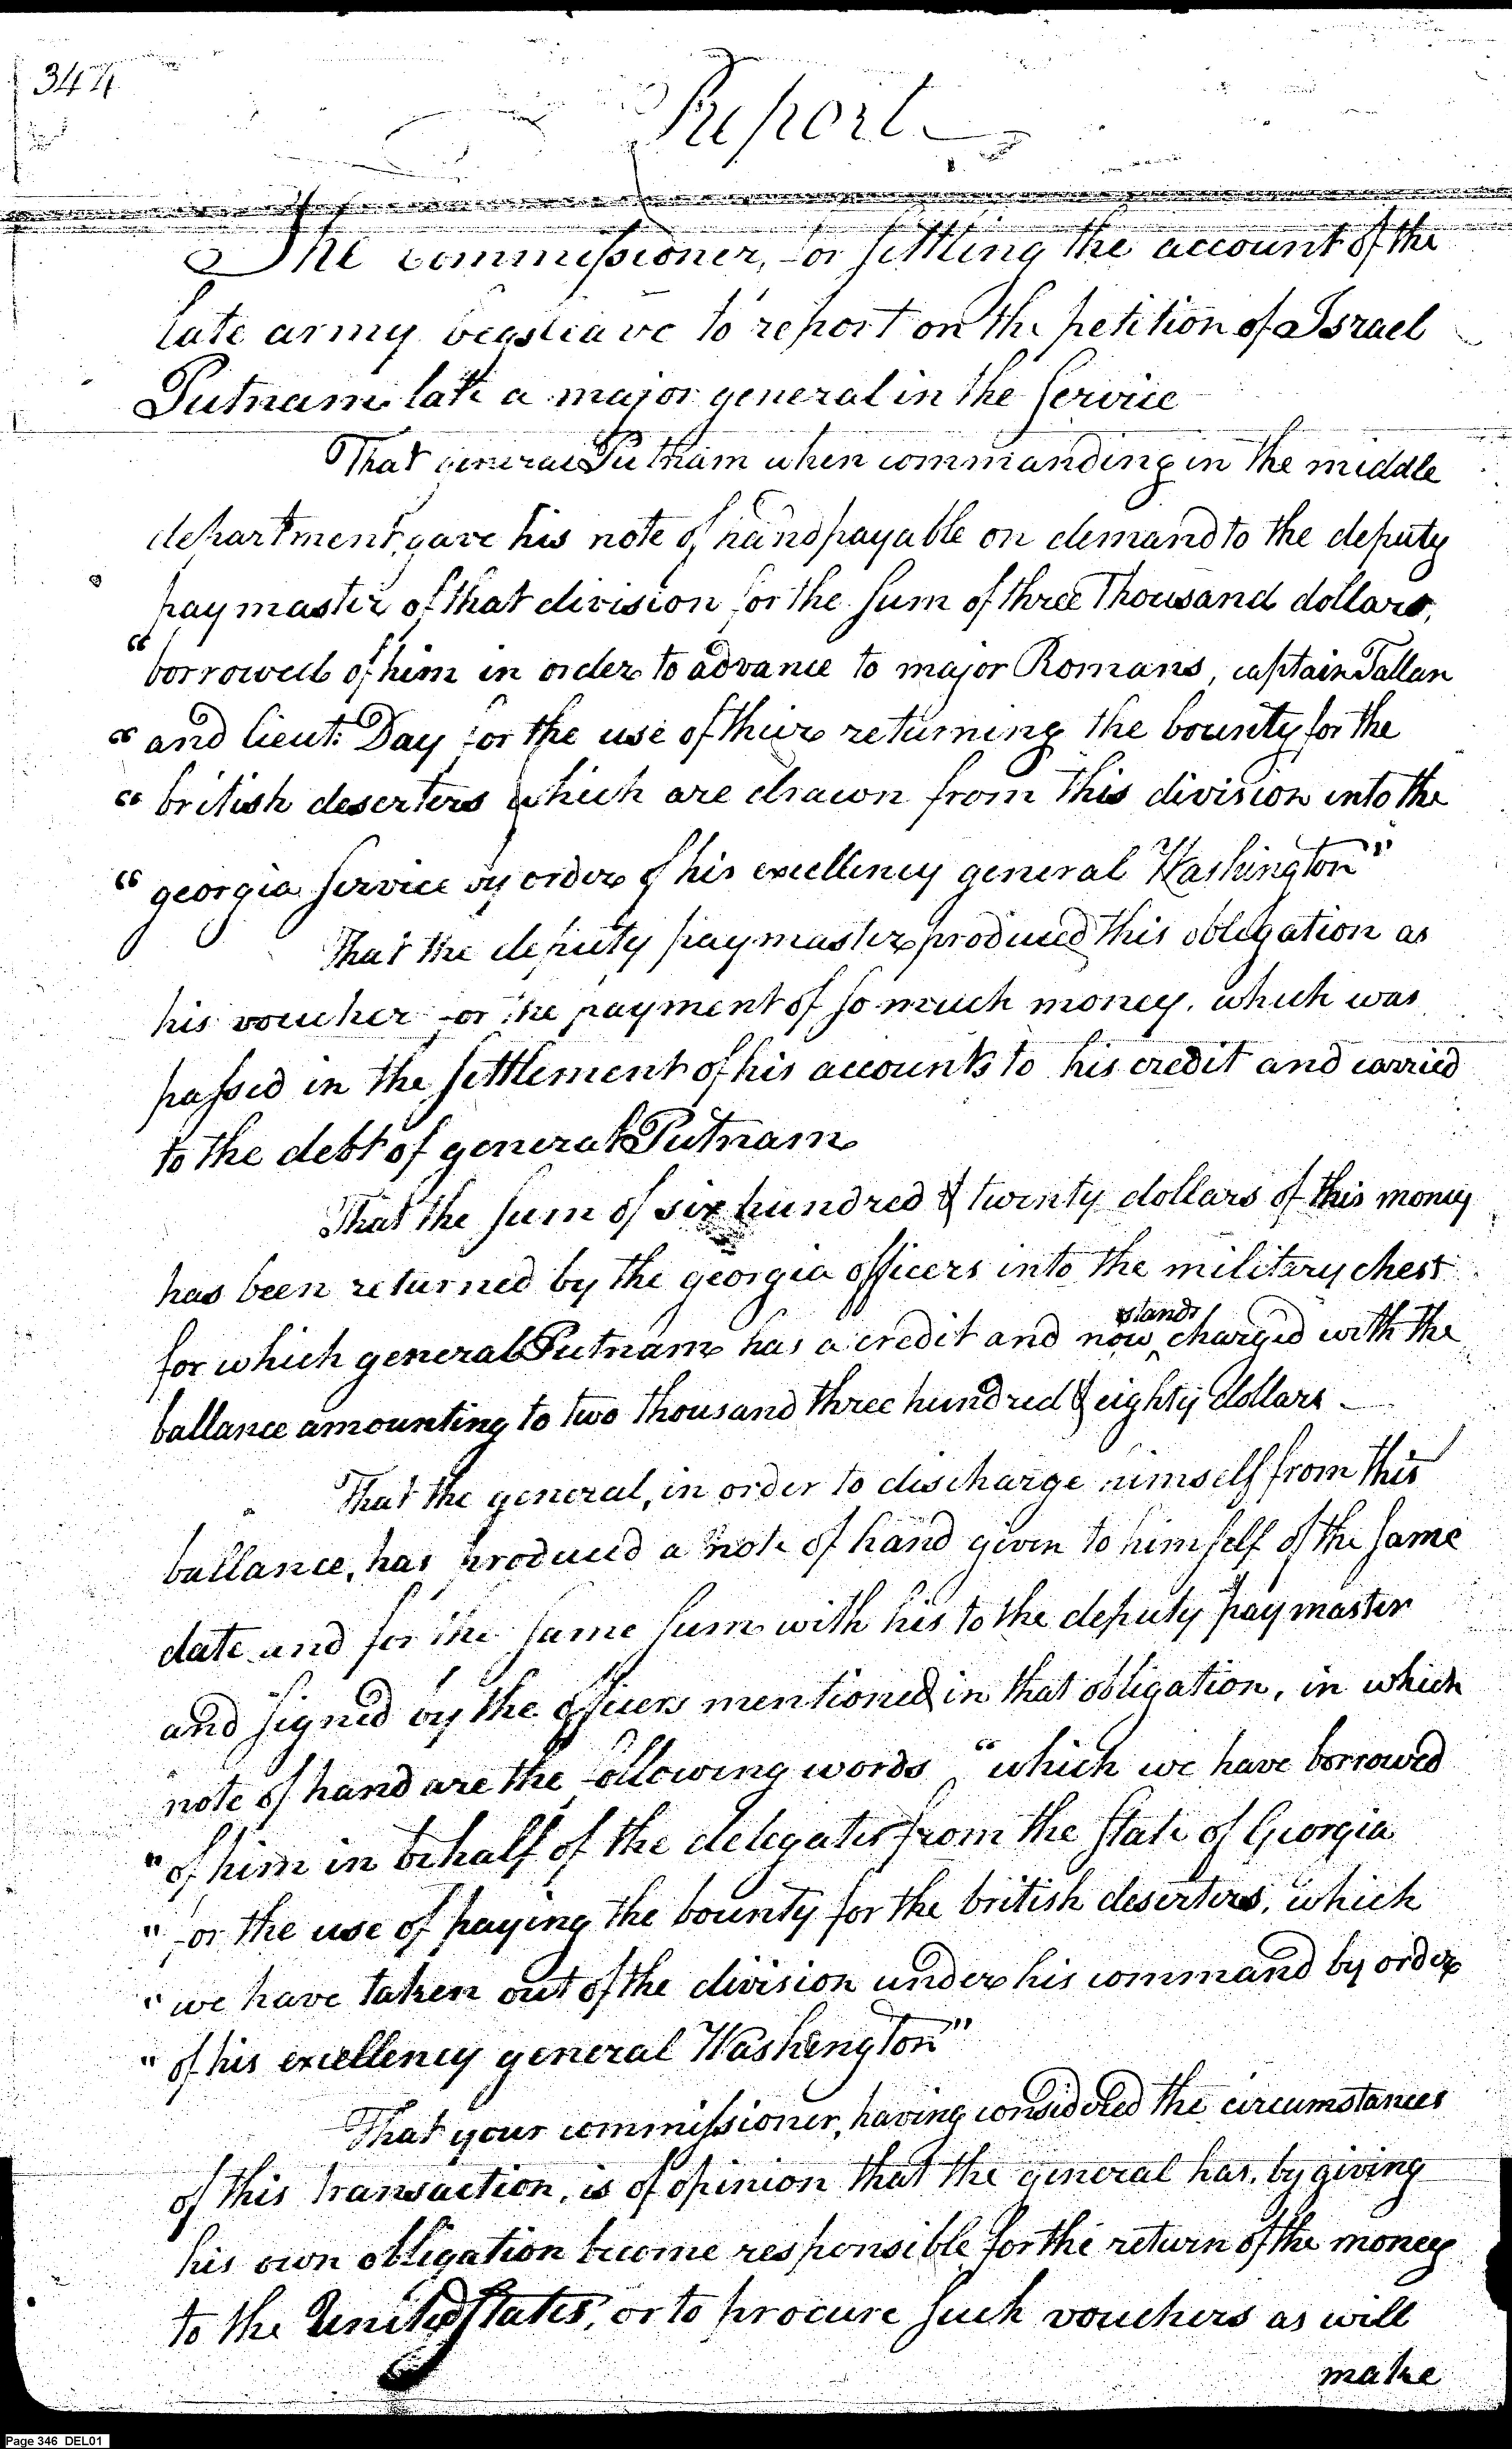 344
Report
The commissioner, for settling the account of the
late army begs leave to report on the petition of Israel
Putnam late a major general in the service
That general Putnam when commanding in the middle
department, gave his note of hand payable on demand to the deputy
paymaster of that division for the sum of three Thousand dollars,
"borrowed of him in order to advance to major Romans, captain Tallan
"and lieut: Day for the use of their returning the bounty for the
"british deserters which are drawn from this division into the
"georgia service by order of his excellency general Washington"
That the deputy paymaster produced this obligation as
his voucher for the payment of so much money, which was
passed in the settlement of his accounts to his credit and carried
to the debt of general Putnam
That the sum of six hundred & twenty dollars of this money
has been returned by the georgia officers into the military chest
for which general Putnam has a credit and now stands charged with the
ballance amounting to two thousand three hundred & eighty dollars
That the general, in order to discharge himself from this
ballance, has produced a note of hand given to himself of the same
date and for the same sum with his to the deputy paymaster
and signed by the officers mentioned in that obligation, in which
note of hand are the following words "which we have borrowed
"of him in behalf of the delegates from the state of Georgia
"for the use of paying the bounty for the british deserters, which
"we have taken out of the division under his command by order
"of his excellency general Washington"
That your commissioner, having considered the circumstances
of this transaction, is of opinion that the general has, by giving
his own obligation become responsible for the return of the money
to the United States, or to procure such vouchers as will
make
Page 346 DEL01